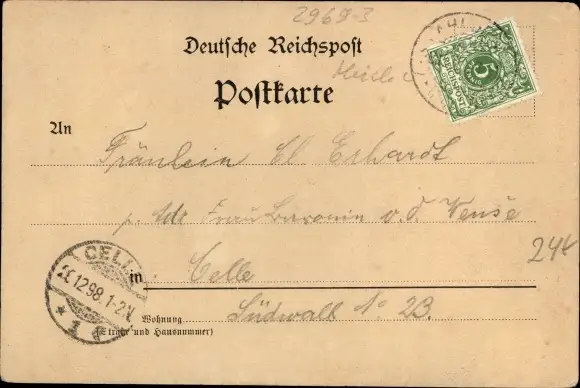 2969-3
Deutsche Reichspost
Postkarte
REICHSPOST
5
An
Fräulein El. Erhardt
p. Adr. Frau Baronin v. d. Wense
24x
CELLE
26.12.98.1-2N.
* 1 d
in Celle
Südwall No 23.
Wohnung
(Straße und Hausnummer)